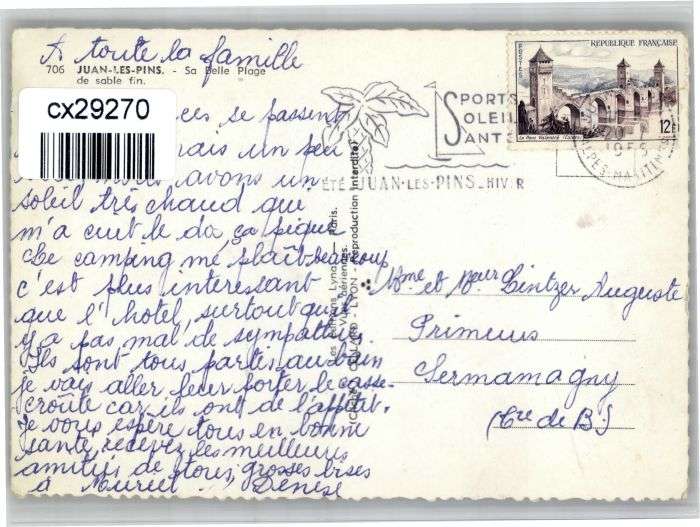 A toute la famille
706 JUAN-LES-PINS. - Sa Belle Plage
de sable fin.
cx29270
se passent
mais un peu
avons un
soleil très chaud que
m'a cuit le do ça pique
Le camping me plaît beaucoup
c'est plus interessant
que l'hotel, surtout qu'
y a pas mal de sympathie.
Ils sont tous partes au bain
je vais aller leur porter le casse-
croûte car ils ont de l'appétit.
Je vous espère tous en bonne
santé, recevez les meilleures
amitiés de tous, grosses bises
à Muriel Denise
SPORTS
SOLEIL
SANTÉ
ÉTÉ JUAN-LES-PINS - HIVER
Les Editions Lyna — Paris.
Vues aériennes.
LYON - Reproduction interdite)
REPUBLIQUE FRANÇAISE
POSTES
Le Pont Valentré - Cahors
12F
ALPES-MARITIMES
Mme et Mxur Lintzer Auguste
Primeurs
Sermamagny
(Tre de B)